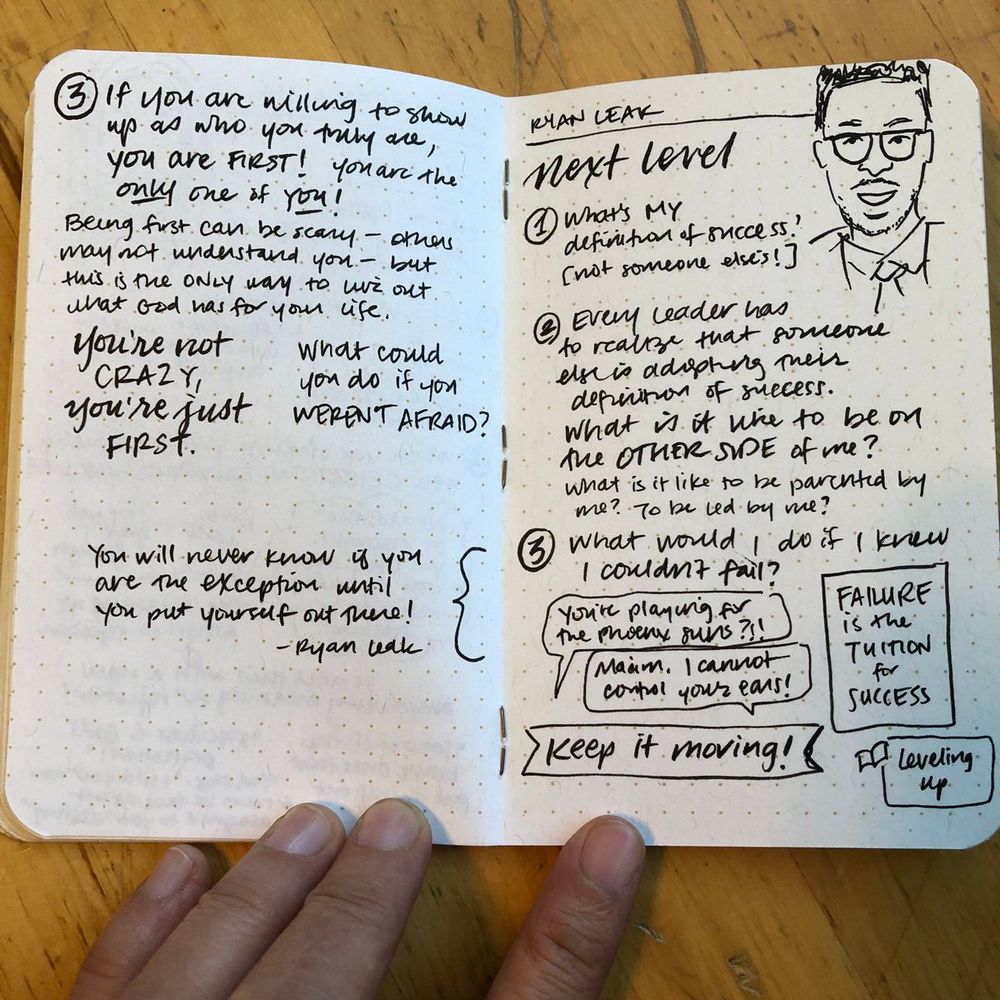 ③ If you are willing to show
up as who you truly are,
you are FIRST! you are the
only one of you!
Being first can be scary – others
may not understand you – but
this is the ONLY way to live out
what God has for your life.
you're not
CRAZY,
you're just
FIRST.
What could
you do if you
WEREN'T AFRAID?
You will never know if you
are the exception until
you put yourself out there!
– Ryan Leak
RYAN LEAK
Next Level
① What's MY
definition of success?
[not someone else's!]
② Every leader has
to realize that someone
else is adopting their
definition of success.
What is it like to be on
the OTHER SIDE of me?
What is it like to be parented by
me? To be led by me?
③ What would I do if I knew
I couldn't fail?
You're playing for
the phoenix suns?!!
Ma'am. I cannot
control your ears!
FAILURE
is the
TUITION
for
SUCCESS
Keep it moving!
Leveling
Up